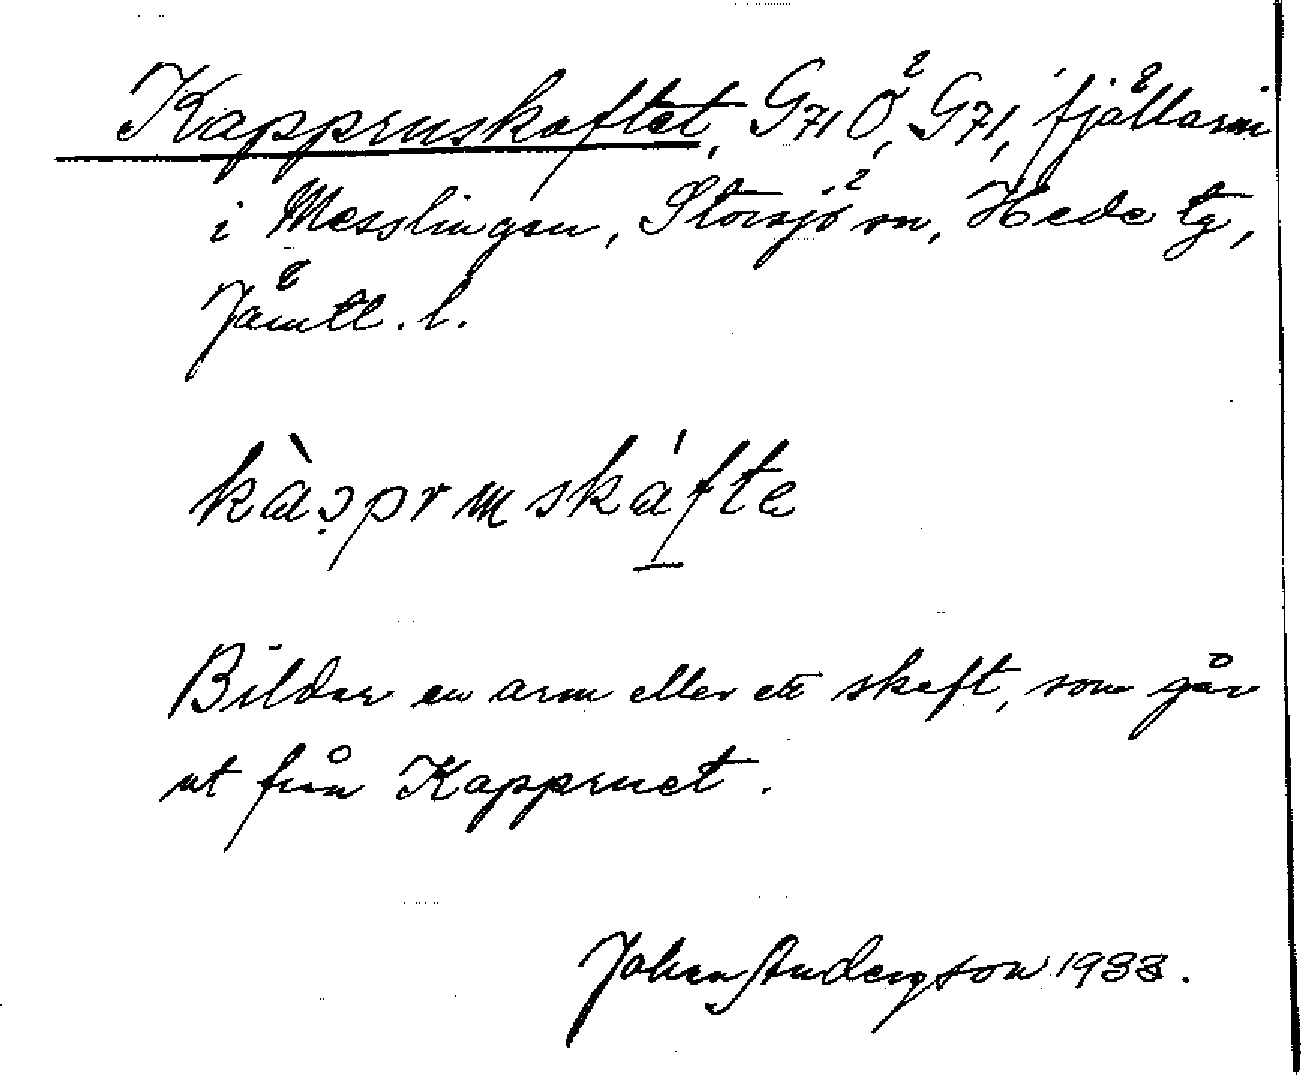 Kappruskaftet, G71Ö, G71, fjällarm
i Messlingen, Storsjö sn, Hede tg,
Jämtl. l.
Bildar en arm eller ett skaft, som går
ut från Kappruet.
Johan Anderson 1933.